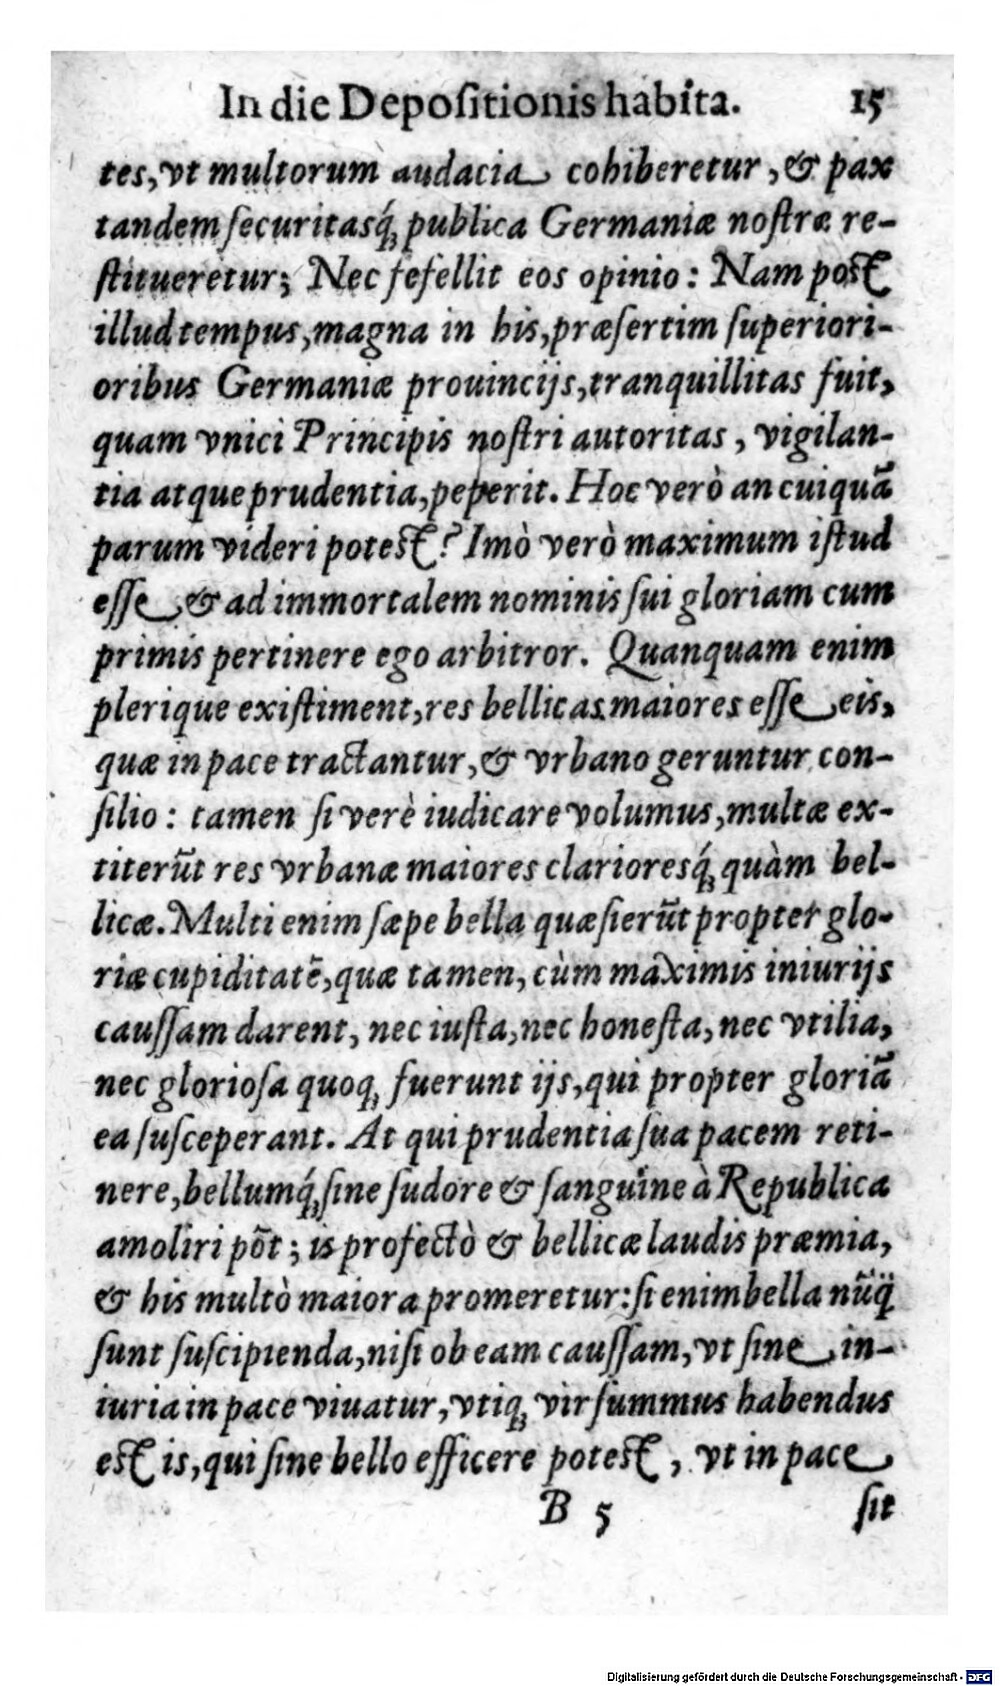 In die Depoſitionis habita. 15
tes, vt multorum audacia cohiberetur, & pax
tandem ſecuritasq́; publica Germaniæ noſtræ re-
ſtitueretur; Nec fefellit eos opinio: Nam poſt
illud tempus, magna in his, præſertim ſuperiori-
oribus Germaniæ prouincijs, tranquillitas fuit,
quam vnici Principis noſtri autoritas, vigilan-
tia atque prudentia, peperit. Hoc verò an cuiquã
parum videri poteſt? Imò verò maximum iſtud
eſſe & ad immortalem nominis ſui gloriam cum
primis pertinere ego arbitror. Quanquam enim
plerique exiſtiment, res bellicas maiores eſſe eis,
quæ in pace tractantur, & vrbano geruntur con-
ſilio: tamen ſi verè iudicare volumus, multæ ex-
titerũt res vrbanæ maiores clarioresq́; quàm bel-
licæ. Multi enim ſæpe bella quæſierũt propter glo-
riæ cupiditatẽ, quæ tamen, cùm maximis iniurijs
cauſſam darent, nec iuſta, nec honeſta, nec vtilia,
nec glorioſa quoq; fuerunt ijs, qui propter gloriã
ea ſuſceperant. At qui prudentia ſua pacem reti-
nere, bellumq́; ſine ſudore & ſanguine à Republica
amoliri põt; is profectò & bellicæ laudis præmia,
& his multò maiora promeretur: ſi enim bella nũq̃
ſunt ſuſcipienda, niſi ob eam cauſſam, vt ſine in-
iuria in pace viuatur, vtiq; vir ſummus habendus
eſt is, qui ſine bello efficere poteſt, vt in pace
B 5 ſit
Digitalisierung gefördert durch die Deutsche Forschungsgemeinschaft - DFG